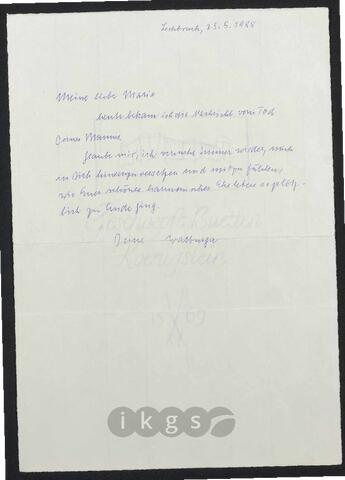 Lechbruck, 25.5.1988
Meine liebe Maria
heute bekam ich die Nachricht vom Tod
Deines Mannes
Glaube mir, ich versuche immer wieder, mich
in Dich hineinzuversetzen und mitzufühlen,
wie Euer schönes harmonisches Eheleben so plötz-
lich zu Ende ging.
Deine Walburga
Geschwoert Buetten
1809
ikgs